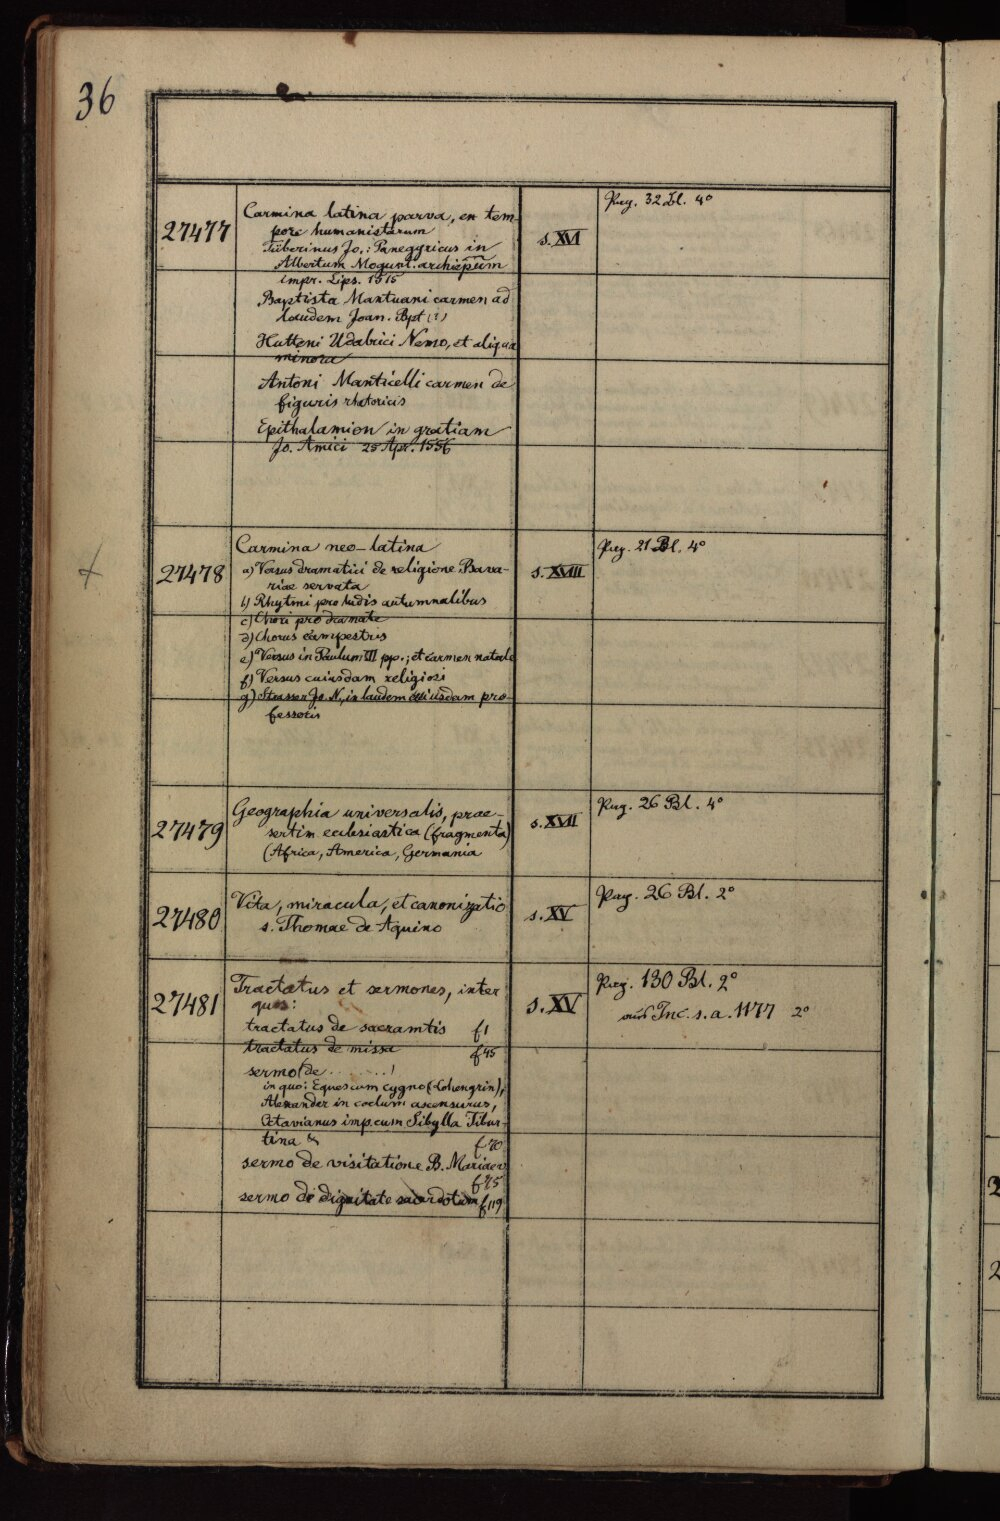 36
27477
Carmina latina parva, en tem-
pore humanistarum
Tuberinus Jo.: Panegyricus in
Albertum Mogunt. archiep̅u̅m
impr. Lips. 1515
Baptista Mantuani carmen ad
laudem Joan. Bpt (?)
Hutteni Udalrici Nemo, et aliqua
minora
Antoni Manticelli carmen de
figuris rhetoricis
Epithalamion in gratiam
Jo. Amici 25 Apr. 1556
s. XVI
Pug. 32 Bl. 4°
27478
Carmina neo-latina
a) Versus dramatici de religione Bava-
riae servata
b) Rhytmi pro ludis autumnalibus
c) Chori pro dramate
d) Chorus campestris
e) Versus in Paulum III pp.; et carmen natale
f) Versus cuiusdam religiosi
g) Strasser Jo. N., in laudem cuiusdam pro-
fessoris
s. XVIII
Pug. 21 Bl. 4°
27479
Geographia universalis, prae-
sertim ecclesiastica (fragmenta)
(Africa, America, Germania
s. XVII
Pug. 26 Bl. 4°
27480
Vita, miracula, et canonizatio
s. Thomae de Aquino
s. XV
Pug. 26 Bl. 2°
27481
Tractatus et sermones, inter
quos:
tractatus de sacramtis f 1
tractatus de missa f 45
sermo (de . . . . . . . )
in quo: Eques cum cygno (Lohengrin),
Alexander in coelum ascensurus,
Octavianus imp. cum Sibylla Tibur-
tina & f 70
sermo de visitatione B. Mariae v
f 75
sermo de dignitate sacerdotum f 119
s. XV
Pug. 130 Bl. 2°
Inc. s. a. 1177 2°